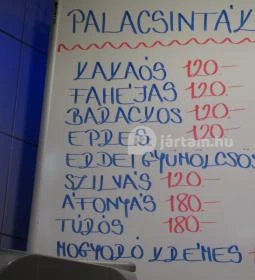 PALACSINTÁK
KAKAÓS 120.-
FAHÉJAS 120.-
BARACKOS 120.-
EPRES 120.-
ERDEI GYÜMÖLCSÖS
SZILVÁS 120.-
ÁFONYÁS 180.-
TÚRÓS 180.-
MOGYORÓKRÉMES
jártain.hu